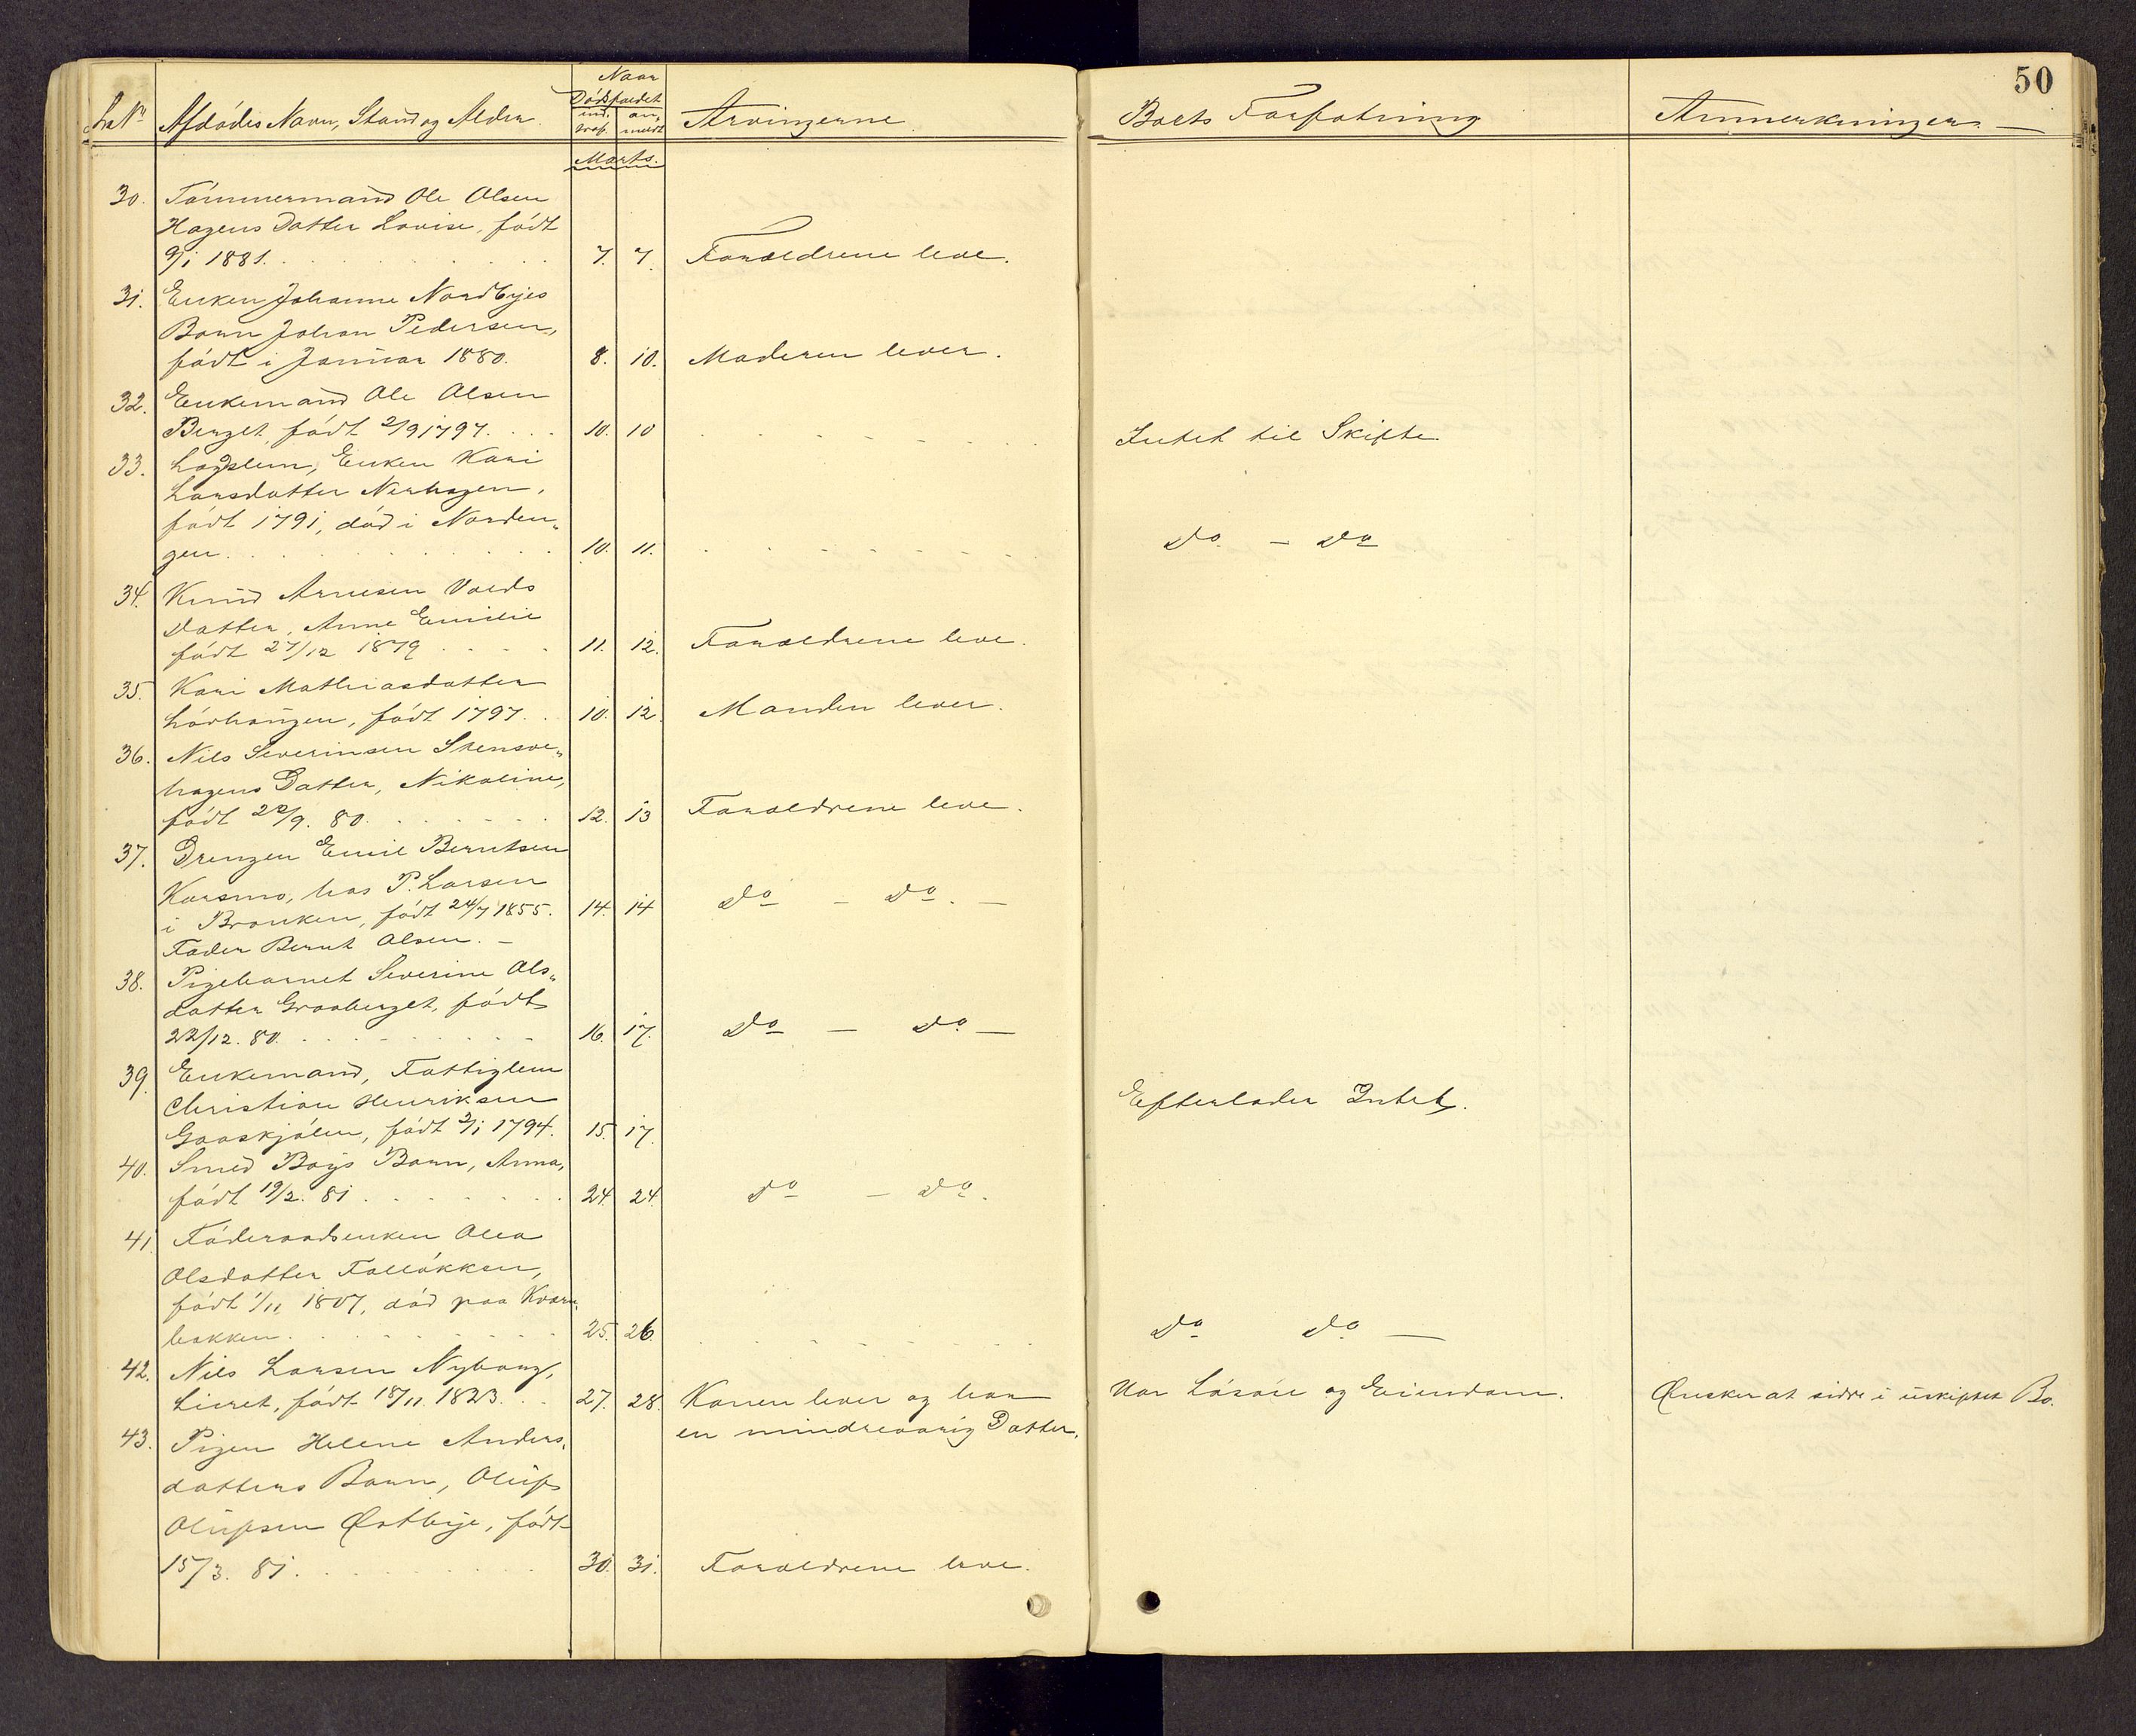 50
Naar
Dödsfaldet
LøNº Afdödes Navn, Stand og Alder. ind-traf. an-meldt Arvingerne. Boets Forfatning Anmerkninger. —
Marts.
30. Tömmermand Ole Olsen
Hagens Datter Lovise, födt
9/1 1881. 7. 7. Forældrene leve.
31. Enken Johanne Nordbyes
Barn Johan Pedersen,
födt i Januar 1880. 8. 10. Moderen lever.
32. Enkemand Ole Olsen
Berget, födt 2/9 1797. 10. 10 Intet til Skifte.
33. Lægslem, Enken Kari
Larsdatter Nerhagen,
födt 1791, död i Norden-
gen. 10. 11. Do — Do
34. Knud Arnesen Volds
Datter, Anne Emilie
födt 27/12 1879 11. 12. Forældrene leve.
35. Kari Mathiasdatter
Lörhaugen, födt 1797. 10. 12. Manden lever.
36. Nils Severinsen Stensve-
hagens Datter, Nikoline,
födt 22/9. 80. 12. 13 Forældrene leve.
37. Drengen Emil Berntsen
Korsmo, hos P. Larsen
i Bronken, födt 24/7 1855. 14. 14 Do — Do. —
Fader Bernt Olsen. —
38. Pigebarnet Severine Ols-
datter Graaberget, födt
22/12. 80. 16. 17. Do — Do —
39. Enkemand, Fattiglem
Christian Henriksen
Gaaskjölen, födt 2/1 1794. 15. 17. Efterlader Intet.
40. Smed Boÿs Barn, Anna,
födt 19/2. 81. 24. 24. Do — Do.
41. Föderaadsenken Olea
Olsdatter Fallökken,
födt 1/11 1807, död paa Kvern-
bakken. 25. 26. Do Do —
42. Nils Larsen Nyborg,
Lieret, födt 18/11 1823. 27. 28. Konen lever og har Har Lösöre og Eiendom. Önsker at sidde i uskiftet Bo.
en mindreaarig Datter.
43. Pigen Helene Anders-
datters Barn, Oluf
Olufsen Østbye, födt
15/3. 81. 30. 31. Forældrene leve.